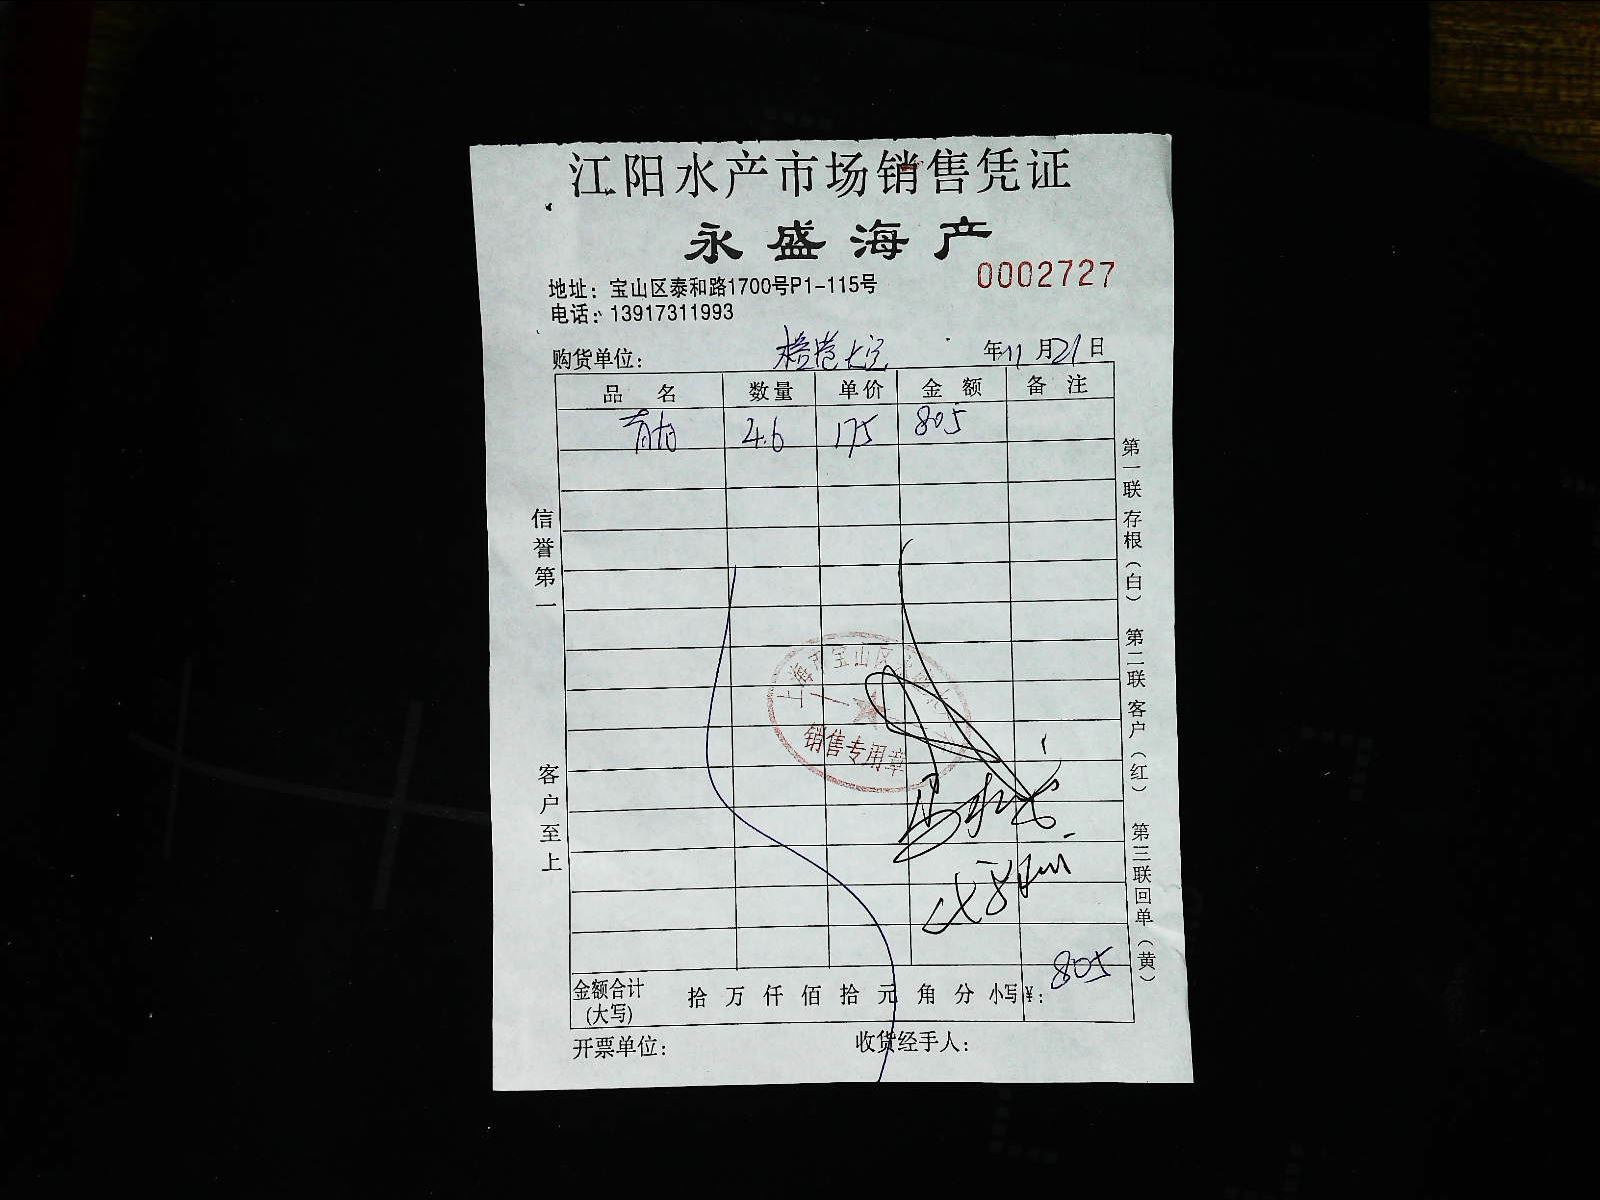 江阳水产市场销售凭证
永盛海产
0002727
地址：宝山区泰和路1700号P1-115号
电话：13917311993
购货单位： 年11月21日
品名 数量 单价 金额 备注
4.6 175 805
信誉第一
客户至上
第一联 存根（白） 第二联 客户（红） 第三联 回单（黄）
上海市宝山区
销售专用章
金额合计(大写) 拾 万 仟 佰 拾 元 角 分 小写¥： 805
开票单位： 收货经手人：